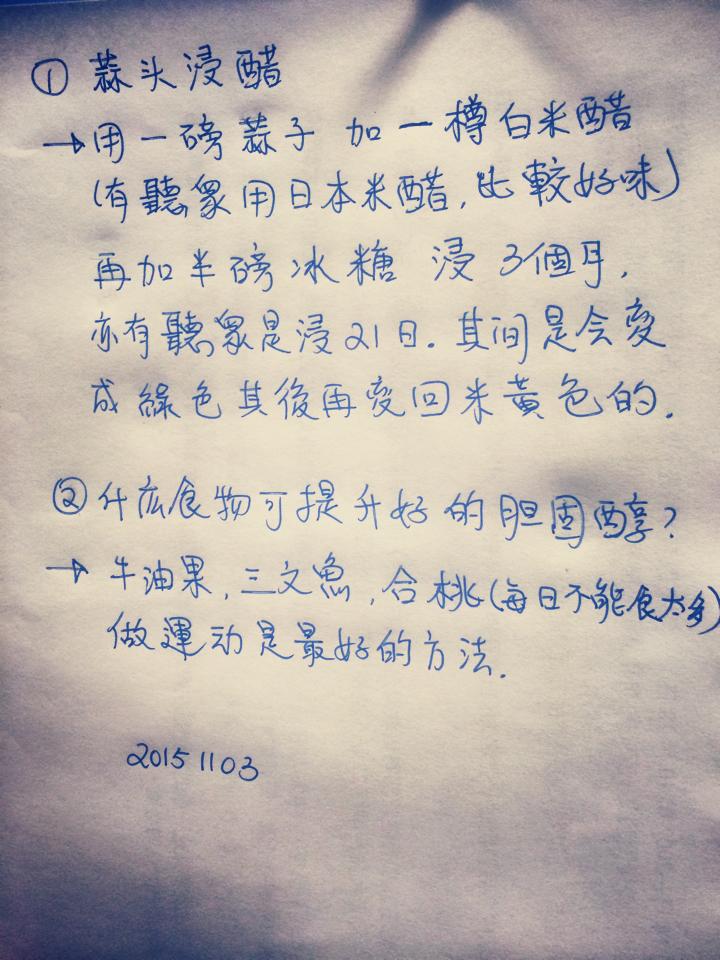 ① 蒜头浸醋
→用一磅蒜子 加一樽白米醋
(有聽眾用日本米醋,比較好味)
再加半磅冰糖 浸 3個月,
亦有聽眾是浸21日.其间是会变
成綠色其後再变回米黃色的.
② 什庅食物可提升好的胆固醇?
→ 牛油果,三文魚,合桃(每日不能食太多)
做運动是最好的方法.
20151103